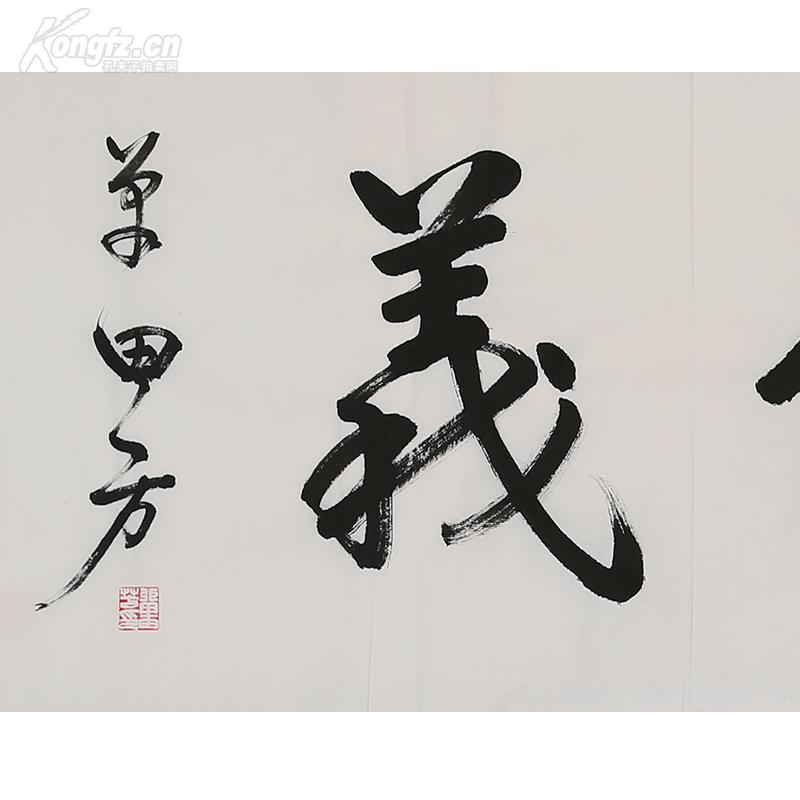 Kongfz.cn
孔夫子拍卖网
義
单田芳